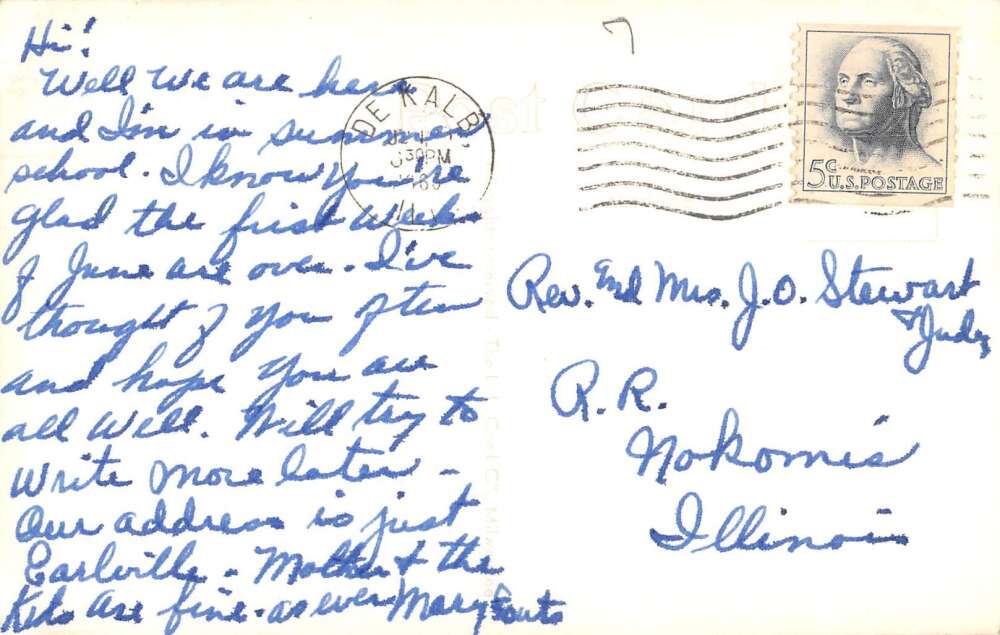 Hi!
Well we are here
and I'm in summer
school. I know you're
glad the first weeks
of June are over. I've
thought of you often
and hope you are
all well. Will try to
write more later -
Our address is just
Earlville - Mother & the
kids are fine. as ever Mary
DE KALB
PM
5¢
U.S. POSTAGE
Rev. and Mrs. J.O. Stewart
& Judy
R.R.
Nokomis
Illinois
7